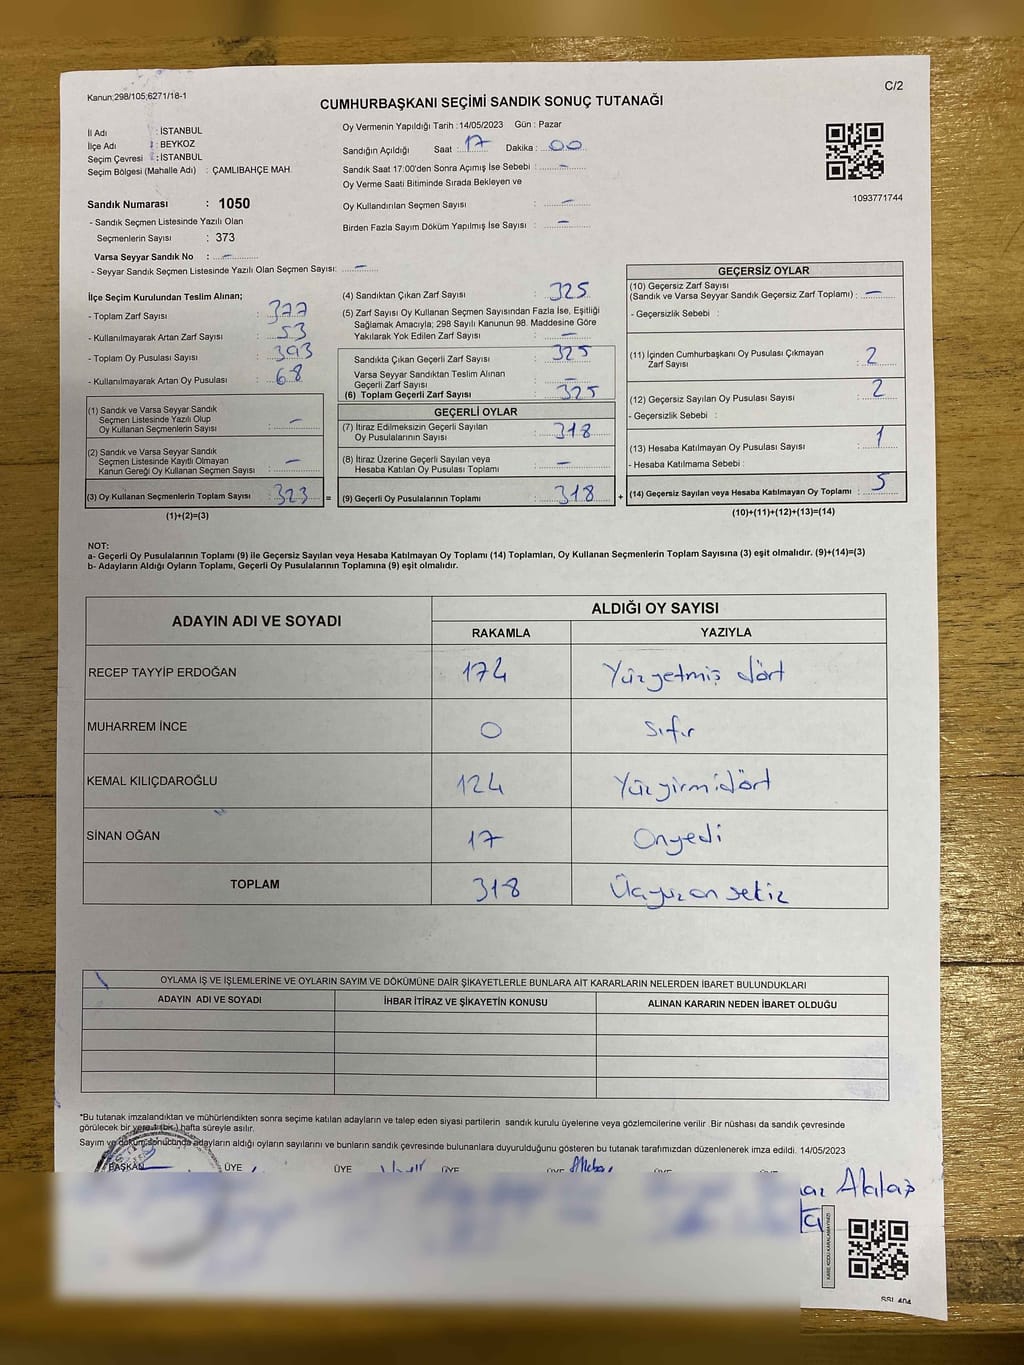 Kanun;298/105;6271/18-1
C/2
CUMHURBAŞKANI SEÇİMİ SANDIK SONUÇ TUTANAĞI
İl Adı : İSTANBUL
İlçe Adı : BEYKOZ
Seçim Çevresi : İSTANBUL
Seçim Bölgesi (Mahalle Adı) : ÇAMLIBAHÇE MAH.
Sandık Numarası : 1050
- Sandık Seçmen Listesinde Yazılı Olan
Seçmenlerin Sayısı : 373
Varsa Seyyar Sandık No : -
- Seyyar Sandık Seçmen Listesinde Yazılı Olan Seçmen Sayısı: -
Oy Vermenin Yapıldığı Tarih : 14/05/2023 Gün : Pazar
Sandığın Açıldığı Saat : 17 Dakika : 00
Sandık Saat 17:00'den Sonra Açımış İse Sebebi : -
Oy Verme Saati Bitiminde Sırada Bekleyen ve
Oy Kullandırılan Seçmen Sayısı : -
Birden Fazla Sayım Döküm Yapılmış İse Sayısı : -
1093771744
İlçe Seçim Kurulundan Teslim Alınan;
- Toplam Zarf Sayısı : 377
- Kullanılmayarak Artan Zarf Sayısı : 53
- Toplam Oy Pusulası Sayısı : 393
- Kullanılmayarak Artan Oy Pusulası : 68
(1) Sandık ve Varsa Seyyar Sandık
Seçmen Listesinde Yazılı Olup
Oy Kullanan Seçmenlerin Sayısı : -
(2) Sandık ve Varsa Seyyar Sandık
Seçmen Listesinde Kayıtlı Olmayan
Kanun Gereği Oy Kullanan Seçmen Sayısı : -
(3) Oy Kullanan Seçmenlerin Toplam Sayısı : 323 =
(1)+(2)=(3)
(4) Sandıktan Çıkan Zarf Sayısı : 325
(5) Zarf Sayısı Oy Kullanan Seçmen Sayısından Fazla İse, Eşitliği
Sağlamak Amacıyla; 298 Sayılı Kanunun 98. Maddesine Göre
Yakılarak Yok Edilen Zarf Sayısı : -
Sandıkta Çıkan Geçerli Zarf Sayısı : 325
Varsa Seyyar Sandıktan Teslim Alınan
Geçerli Zarf Sayısı : -
(6) Toplam Geçerli Zarf Sayısı : 325
GEÇERLİ OYLAR
(7) İtiraz Edilmeksizin Geçerli Sayılan
Oy Pusulalarının Sayısı : 318
(8) İtiraz Üzerine Geçerli Sayılan veya
Hesaba Katılan Oy Pusulası Toplamı : -
(9) Geçerli Oy Pusulalarının Toplamı : 318 +
GEÇERSİZ OYLAR
(10) Geçersiz Zarf Sayısı
(Sandık ve Varsa Seyyar Sandık Geçersiz Zarf Toplamı) : -
- Geçersizlik Sebebi :
(11) İçinden Cumhurbaşkanı Oy Pusulası Çıkmayan
Zarf Sayısı : 2
(12) Geçersiz Sayılan Oy Pusulası Sayısı : 2
- Geçersizlik Sebebi :
(13) Hesaba Katılmayan Oy Pusulası Sayısı : 1
- Hesaba Katılmama Sebebi :
(14) Geçersiz Sayılan veya Hesaba Katılmayan Oy Toplamı : 5
(10)+(11)+(12)+(13)=(14)
NOT:
a- Geçerli Oy Pusulalarının Toplamı (9) ile Geçersiz Sayılan veya Hesaba Katılmayan Oy Toplamı (14) Toplamları, Oy Kullanan Seçmenlerin Toplam Sayısına (3) eşit olmalıdır. (9)+(14)=(3)
b- Adayların Aldığı Oyların Toplamı, Geçerli Oy Pusulalarının Toplamına (9) eşit olmalıdır.
ADAYIN ADI VE SOYADI
ALDIĞI OY SAYISI
RAKAMLA YAZIYLA
RECEP TAYYİP ERDOĞAN 174 Yüzyetmiş dört
MUHARREM İNCE 0 Sıfır
KEMAL KILIÇDAROĞLU 124 Yüzyirmidört
SİNAN OĞAN 17 Onyedi
TOPLAM 318 Üçyüz on sekiz
OYLAMA İŞ VE İŞLEMLERİNE VE OYLARIN SAYIM VE DÖKÜMÜNE DAİR ŞİKAYETLERLE BUNLARA AİT KARARLARIN NELERDEN İBARET BULUNDUKLARI
ADAYIN ADI VE SOYADI İHBAR İTİRAZ VE ŞİKAYETİN KONUSU ALINAN KARARIN NEDEN İBARET OLDUĞU
*Bu tutanak imzalandıktan ve mühürlendikten sonra seçime katılan adayların ve talep eden siyasi partilerin sandık kurulu üyelerine veya gözlemcilerine verilir .Bir nüshası da sandık çevresinde
görülecek bir yere 1 (bir) hafta süreyle asılır.
Sayım ve döküm sonucunda adayların aldığı oyların sayılarını ve bunların sandık çevresinde bulunanlara duyurulduğunu gösteren bu tutanak tarafımızdan düzenlenerek imza edildi. 14/05/2023
BAŞKAN ÜYE ÜYE ÜYE